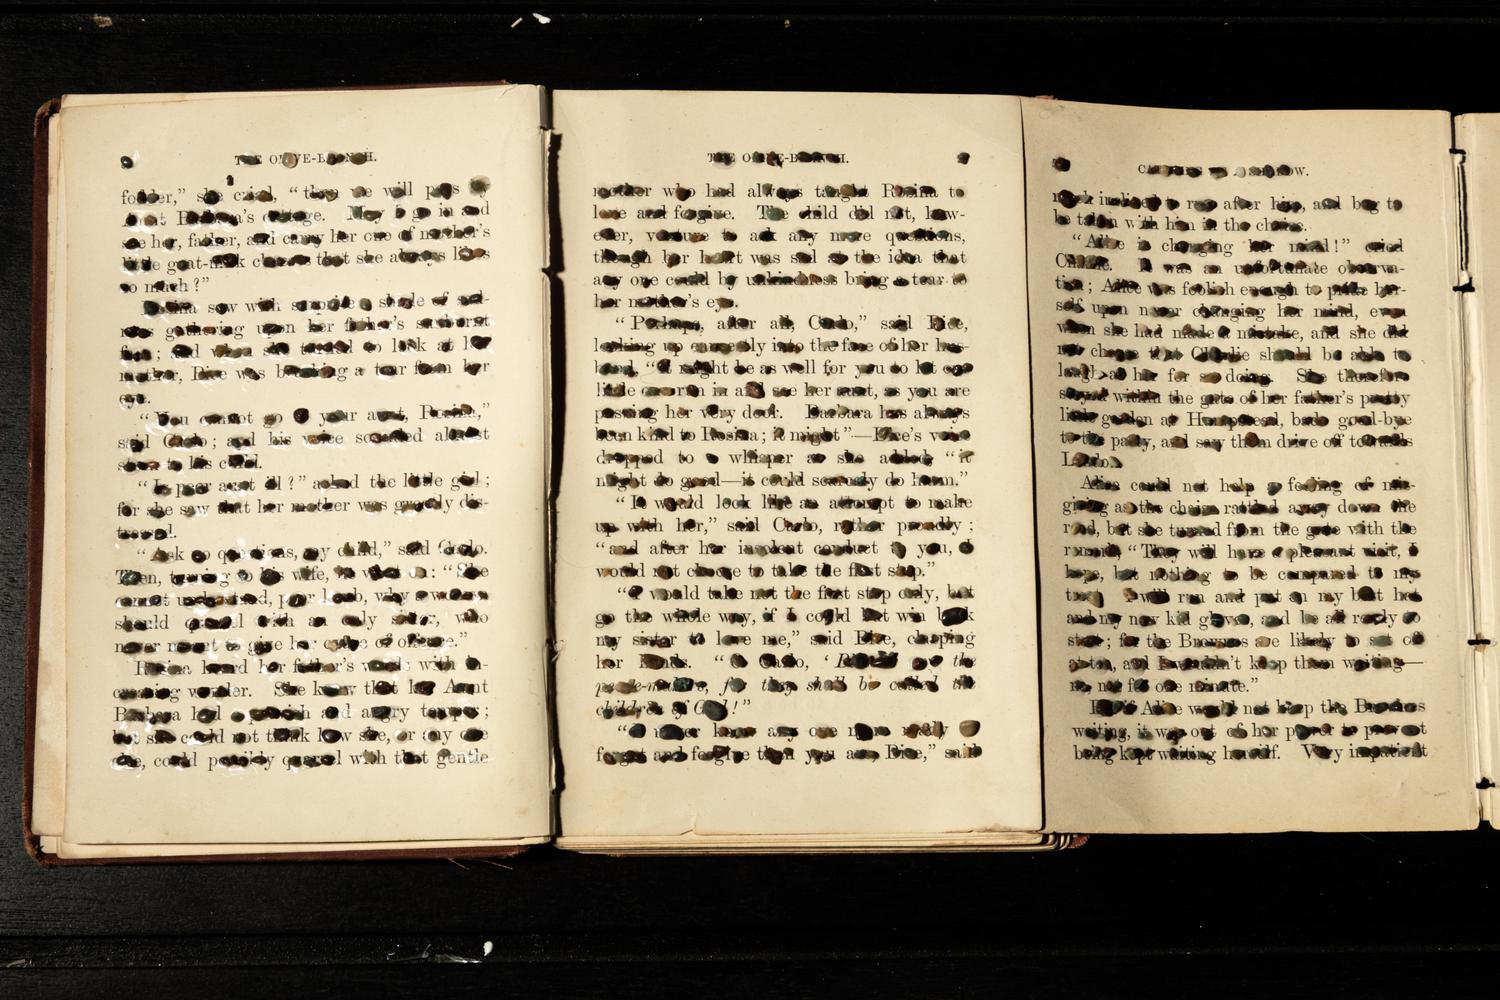 THE OLIVE-BRANCH.
fodder," she cried, "then we will pass by
about Barbara's cottage. May I go in and
see her, father, and carry her one of mother's
little goat-milk cheeses that she always likes
so much?"
Rosina saw with surprise a shade of
gathering upon her father's sunburnt
and when she turned to look at her
mother, Dice was brushing a tear from her
eye.
"You cannot go to your aunt, Rosina,"
said Carlo; and his voice sounded almost
stern to his child.
"Is poor aunt ill?" asked the little girl;
for she saw that her mother was greatly dis-
tressed.
"Ask no questions, my child," said Carlo.
Then, turning to his wife, he "She
cannot understand, poor lamb, why a woman
should quarrel with an only sister, who
never meant to give her cause of offence."
Rosina heard her father's words with in-
creasing wonder. She knew that her Aunt
Barbara had a and angry temper;
but she could not think how she, or any one
else, could possibly quarrel with that gentle
THE OLIVE-BRANCH.
mother who had always taught Rosina to
love and forgive. The child did not, how-
ever, venture to ask any more questions,
though her heart was sad at the idea that
any one could by unkindness bring a tear to
her mother's eye.
"Perhaps, after all, Carlo," said Dice,
looking up earnestly into the face of her hus-
band, "it might be as well for you to let our
little one run in and see her aunt, as you are
passing her very door. Barbara has always
been kind to Rosina; it might"—Dice's voice
dropped to a whisper as she added, "it
might do good—it could scarcely do harm."
"It would look like an attempt to make
up with her," said Carlo, rather proudly;
"and after her insolent conduct to you, I
would not choose to take the first step."
"I would take not the first step only, but
go the whole way, if I could but win back
my sister to love me," said Dice, clasping
her hands. "O Carlo, 'Blessed are the
peace-makers, for they shall be called the
children of God!"
"I never knew any one more ready to
forget and forgive than you are, Dice," said
much inclined to run after him, and beg to
be taken with him in the chaise.
"Alice is changing her mind!" cried
Charlie. It was an unfortunate observa-
tion; Alice was foolish enough to pride her-
self upon never changing her mind, even
when she had made a mistake, and she did
not choose that Charlie should be able to
laugh at her for so doing. She therefore
stayed within the gate of her father's pretty
little garden at Hampstead, bade good-bye
to the party, and saw them drive off towards
London.
Alice could not help a feeling of mis-
giving as the chaise rattled away down the
road, but she turned from the gate with the
remark, "They will have a pleasant visit, I
hope, but nothing to be compared to my
treat. I will run and put on my best hat
and my new kid gloves, and be all ready to
start; for the Brownes are likely to set off
often, and I wouldn't keep them waiting—
no, not for one minute."
If Alice would not keep the Brownes
waiting, it was out of her power to prevent
being kept waiting herself. Very impatient